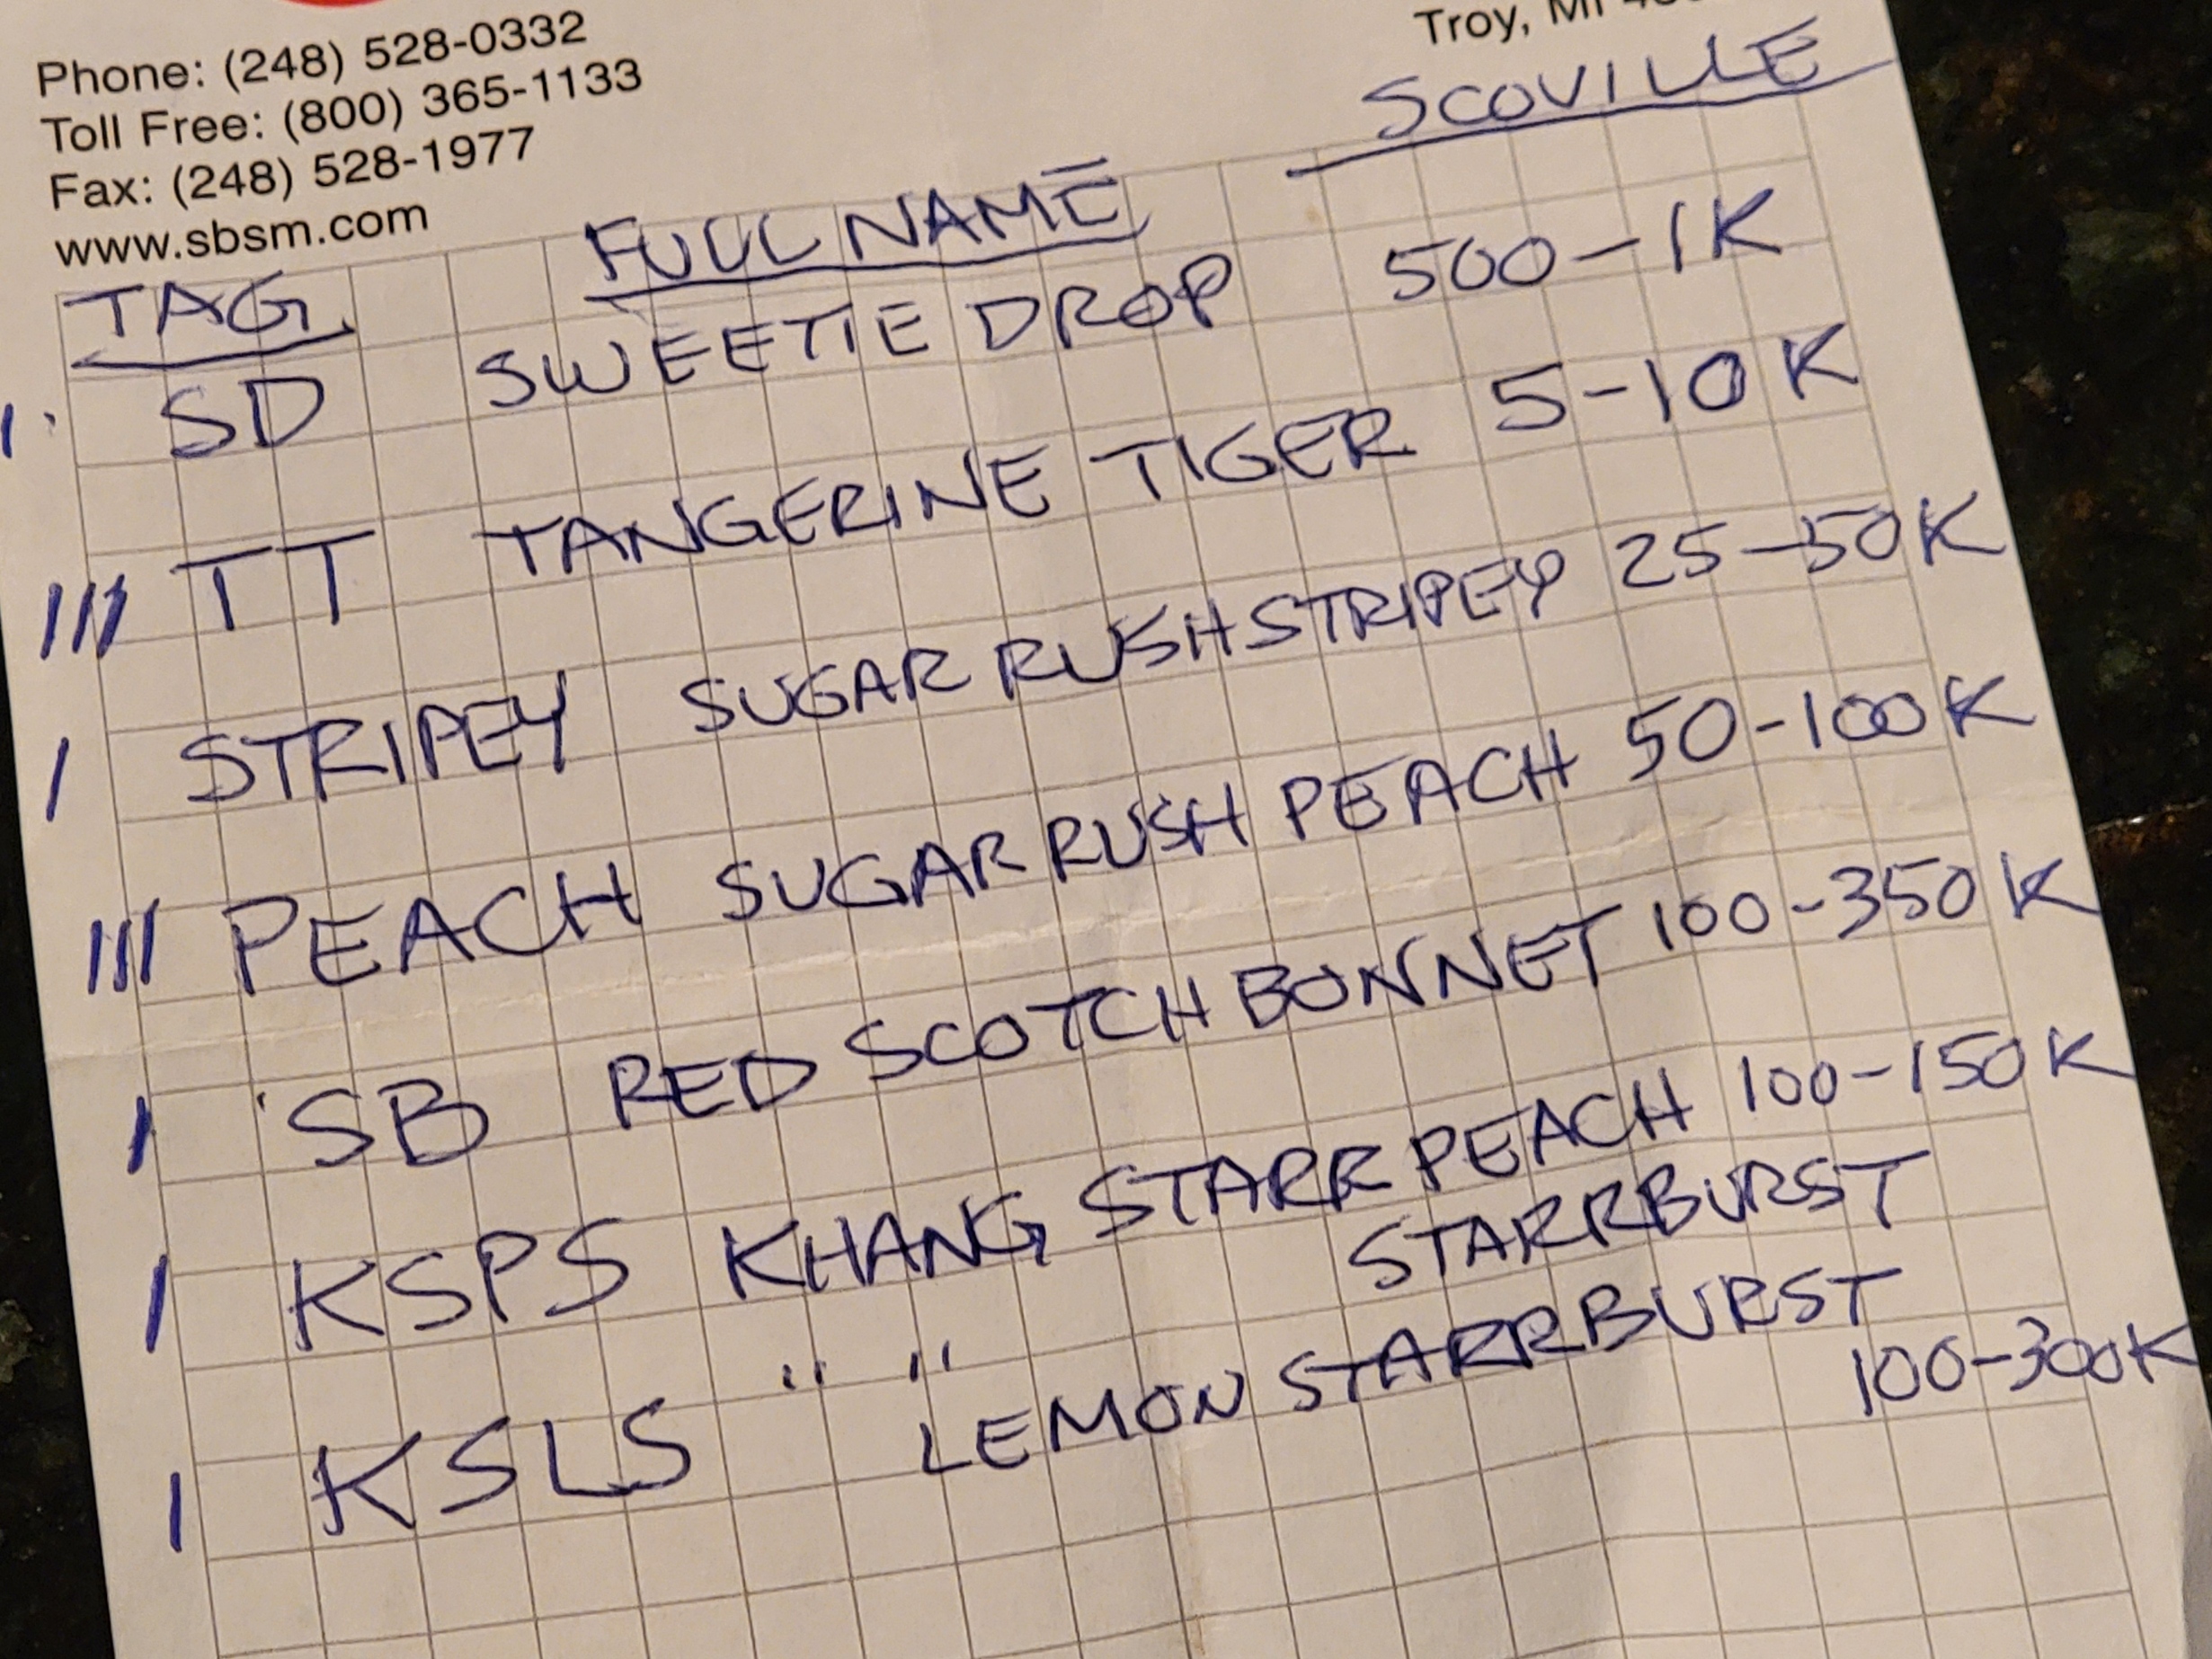 Phone: (248) 528-0332
Toll Free: (800) 365-1133
Fax: (248) 528-1977
www.sbsm.com
Troy, MI
TAG FULL NAME SCOVILLE
I SD SWEETIE DROP 500-1K
III TT TANGERINE TIGER 5-10K
I STRIPEY SUGAR RUSH STRIPEY 25-50K
III PEACH SUGAR RUSH PEACH 50-100K
I SB RED SCOTCH BONNET 100-350K
I KSPS KHANG STARR PEACH 100-150K
STARRBURST
I KSLS " " LEMON STARRBURST
100-300K